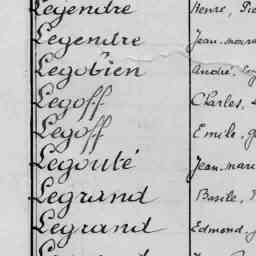 Legendre Henri,
Legendre Jean-marie
Legobien André,
Legoff Charles,
Legoff Emile,
Legouté Jean-marie
Legrand Basile,
Legrand Edmond,